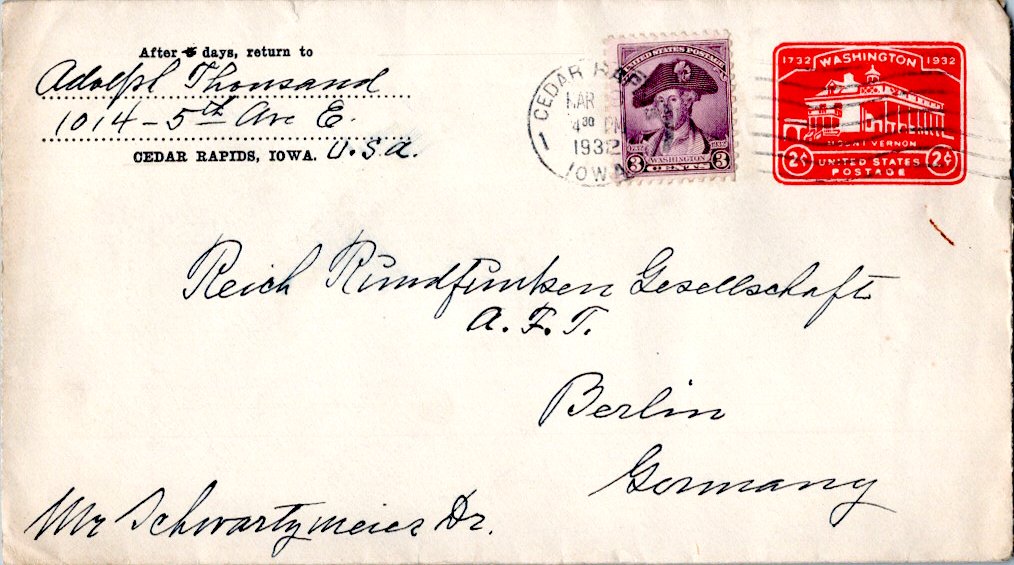 After 5 days, return to
Adolph Thousand
1014 - 5th Ave E.
CEDAR RAPIDS, IOWA. U.S.A.
CEDAR RAP
MAR
4 30 PM
1932
IOWA
UNITED STATES POSTAGE
1732 1932
3 WASHINGTON 3
CENTS
1732 WASHINGTON 1932
MOUNT VERNON
2¢ UNITED STATES 2¢
POSTAGE
Reich Rundfunken Gesellschaft
A. F. T.
Berlin
Germany
Mr Schwartzmeier Dr.